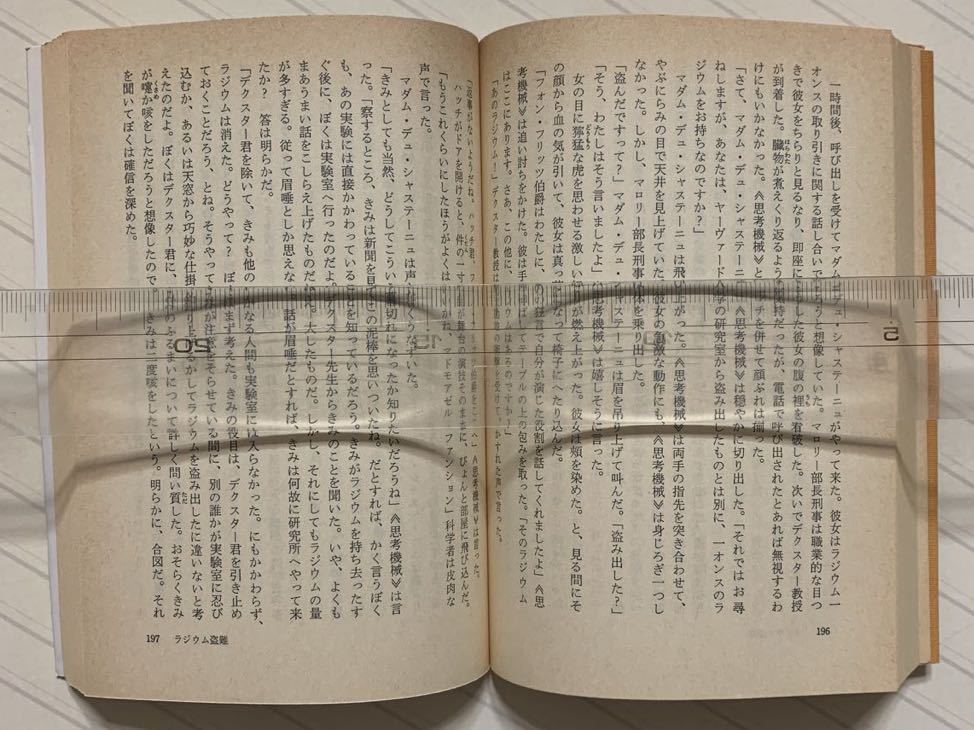 一時間後、呼び出しを受けてマダム・デュ・シャステーニュがやって来た。彼女はラジウム一
オンスの取り引きに関する話し合いで
ろうと想像していた。マロリー部長刑事は職業的な目つ
きで彼女をちらりと見るなり、即座に
とした彼女の腹の裡を看破した。次いでデクスター教授
が到着した。臓物が煮えくり返るような
持だったが、電話で呼び出されたとあれば無視するわ
けにもいかなかった。《思考機械》と
チを併せて顔ぶれは揃った。
「さて、マダム・デュ・シャステーニ
《思考機械》は穏やかに切り出した。「それでは お尋
ねしますが、あなたは、ヤーヴァード大学の研究室から盗み出したものとは別に、一オンスのラ
ジウムをお持ちなのですか？」
マダム・デュ・シャステーニュは飛び上がった。《思考機械》は両手の指先を突き合わせて、
やぶにらみの目で天井を見上げていた。彼女の急激な動作にも、《思考機械》は身じろぎ一つし
なかった。しかし、マロリー部長刑事は体を乗り出した。
「盗んだですって？」マダム・デュ・シャステーニュは眉を吊り上げて叫んだ。「盗み出した？」
「そう、わたしはそう言いましたよ」《思考機械》は嬉しそうに言った。
女の目に獰猛な虎を思わせる激しい
が燃え上がった。彼女は頬を染めた。と、見る間にそ
の顔から血の気が引いて、彼女は真っ
になって椅子にへたり込んだ。
「フォン・フリッツ伯爵はわたしに、
の狂言で自分が演じた役割を話してくれましたよ」《思
考機械》は追い討ちをかけた。彼は手
ばしてテーブルの上の包みを取った。「そのラジウム
はここにあります。さあ、この他に、
ウムはあるのですか？」
「あのラジウム！」デクスター教授は
て、かすれた声で言った。
196
「返事がないようだね。ハッチ君、
《思考機械》は言った。
ハッチがドアを開けると、件の一寸
が舞台の演技そのままに、ぴょんと部屋に飛び込んだ。
「もうこれくらいにしたほうがよくは
かね、マドモアゼル ファンション」科学者は皮肉な
声で言った。
マダム・デュ・シャステーニュは声
くうなずいた。
「きみとしても当然、どうしてこうい
切れになったか知りたいだろうね」《思考機械》は言
った。「察するところ、きみは新聞を見てこの泥棒を思いついたね。だとすれば、かく言うぼく
も、あの実験には直接かかわっていることを知っているだろう。きみがラジウムを持ち去ったす
ぐ後に、ぼくは実験室へ行ったのだよ。デクスター先生からきみのことを聞いた。いや、よくも
まあうまい話をこしらえ上げたものだ
た。大したものだ。しかし、それにしてもラジウムの量
が多すぎる。従って眉唾としか思えな
話が眉唾だとすれば、きみは何故に研究所へやって来
たか？　答は明らかだ。
「デクスター君を除いて、きみも他の
かなる人間も実験室には入らなかった。にもかかわらず、
ラジウムは消えた。どうやって？　ぼくはまず考えた。きみの役目は、デクスター君を引き止め
ておくことだろう、とね。そうやって
が注意をそらせている間に、別の誰かが実験室に忍び
込むか、あるいは天窓から巧妙な仕掛
るかしてラジウムを盗み出したに違いないと考
えたのだよ。ぼくはデクスター君に、
のふるまいについて詳しく問い質した。おそらくきみ
が嚏か咳をしただろうと想像したので
きみは二度咳をしたという。明らかに、合図だ。それ
を聞いてぼくは確信を深めた。
197　ラジウム盗難
20
19
5